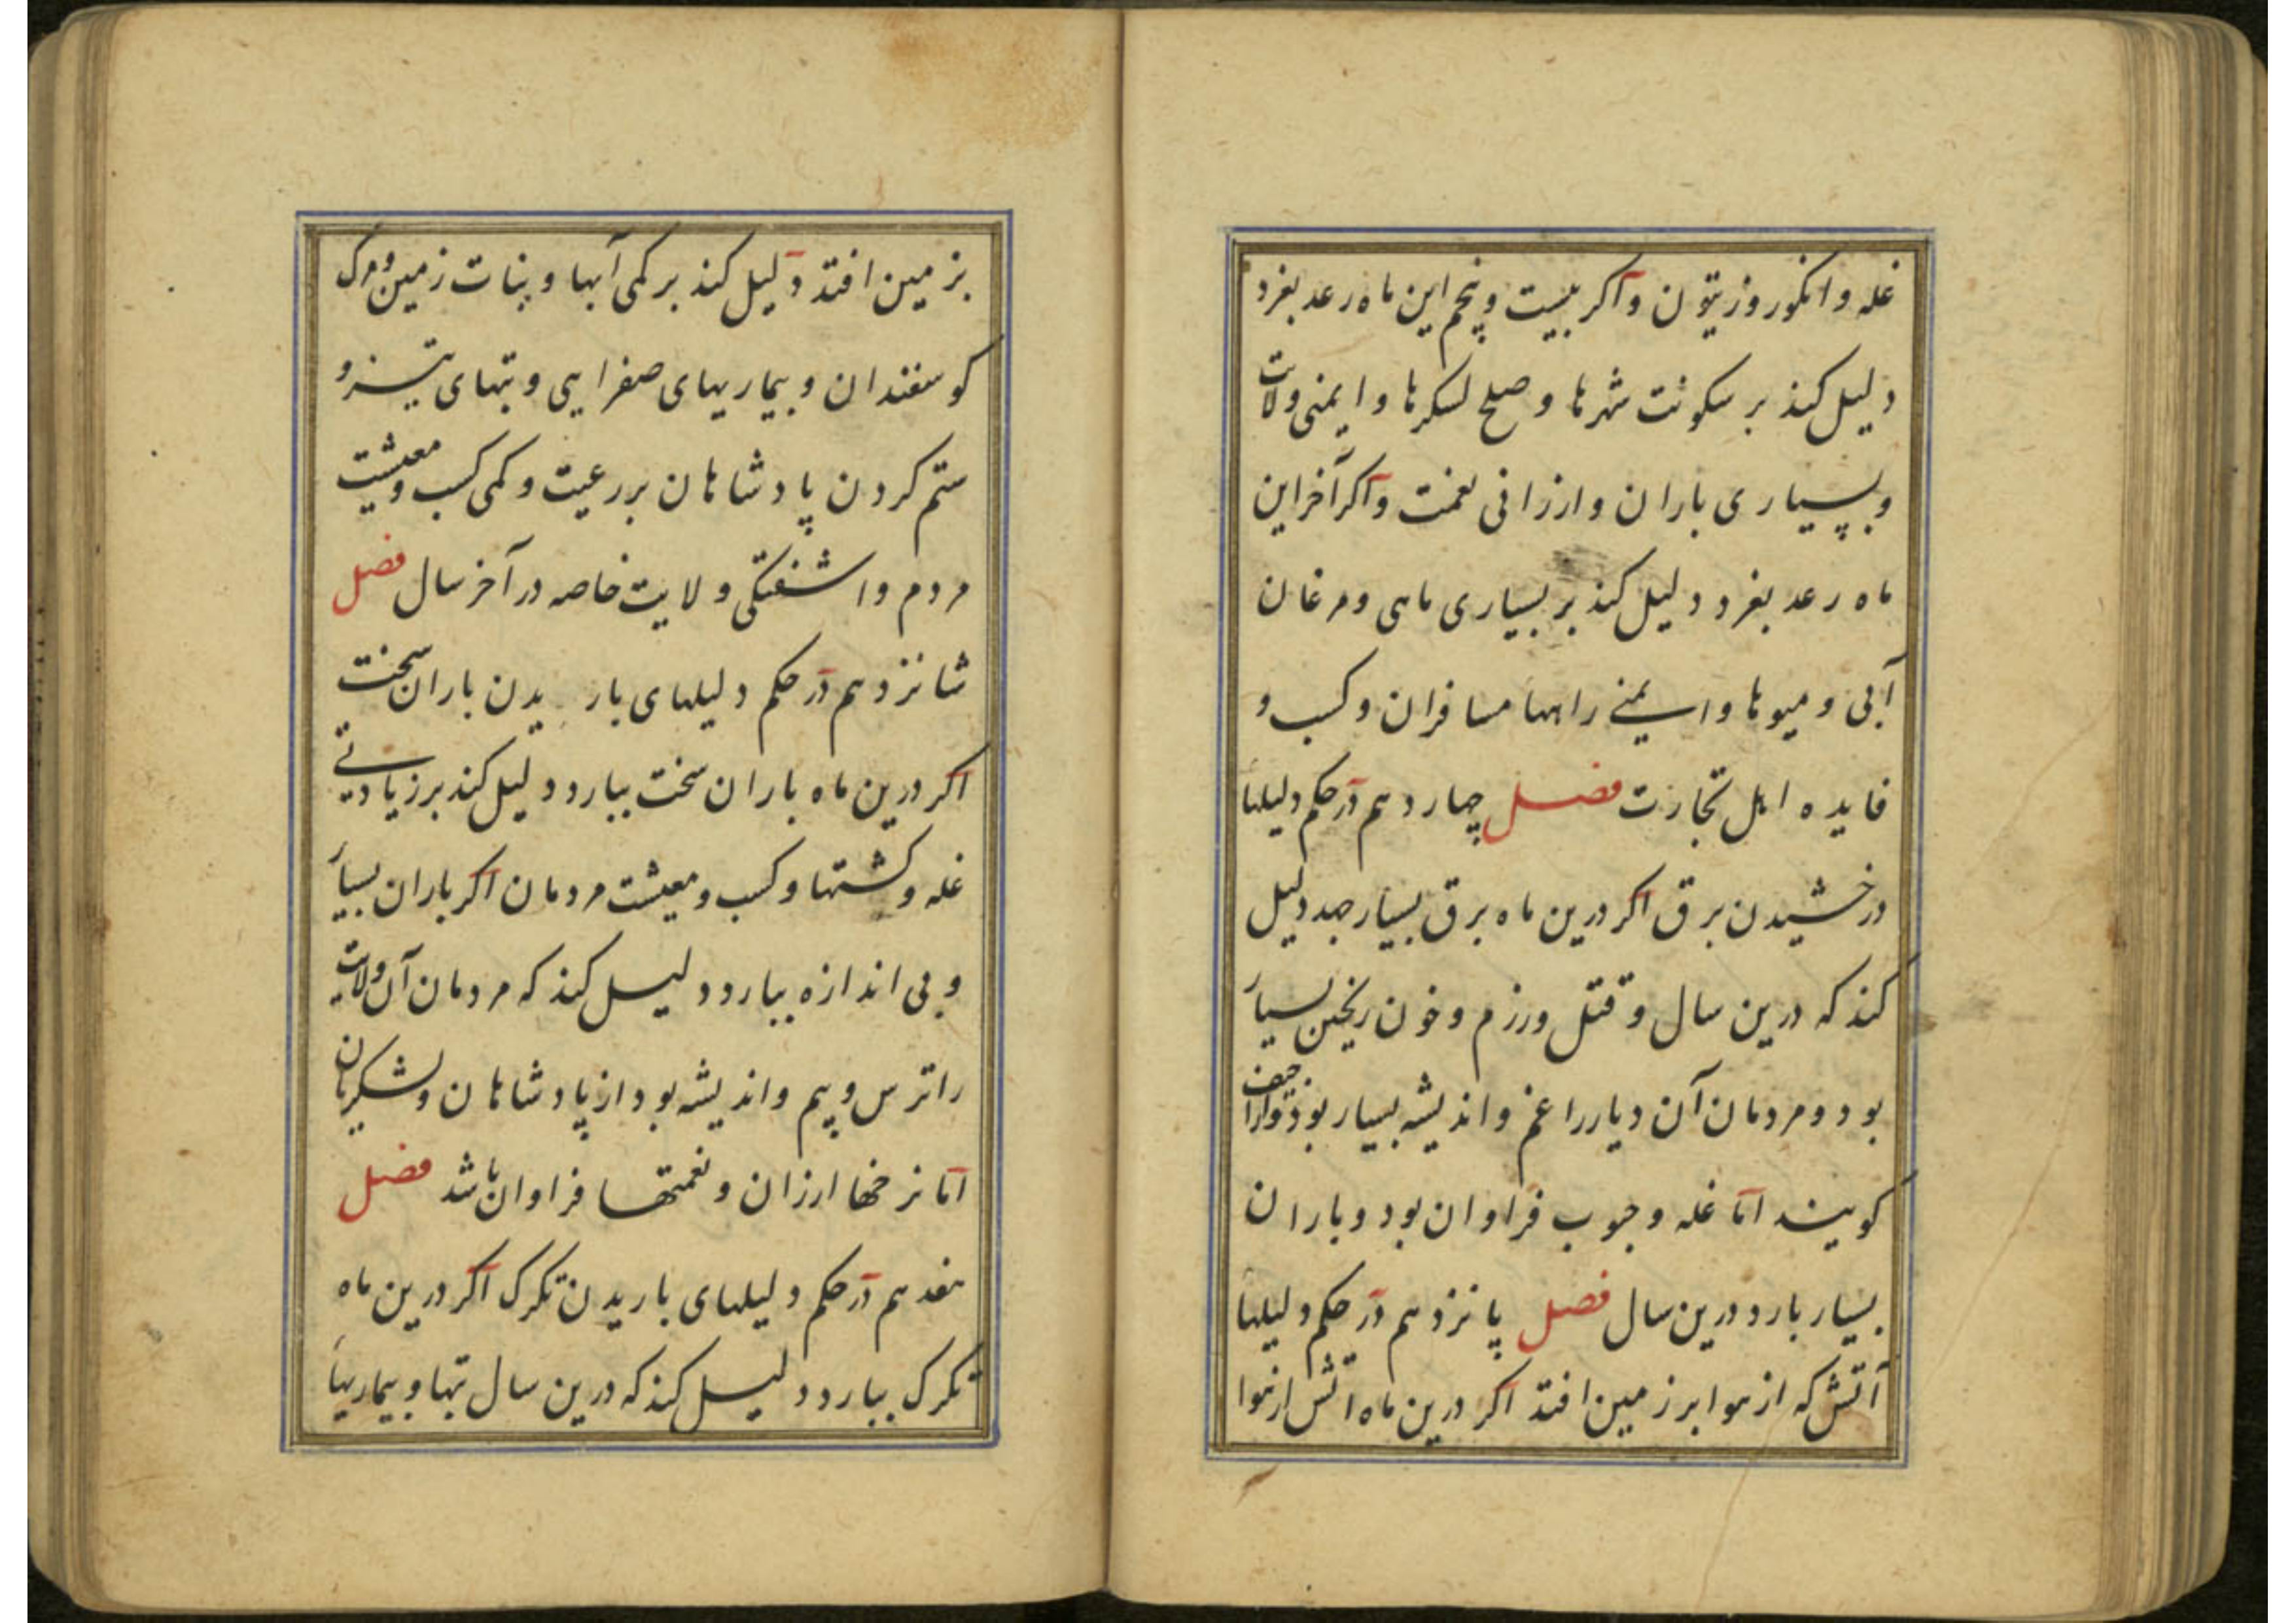 غله و انکور و زیتون و اکر بیست و پنجم این ماه رعد بغرد
دلیل کند بر سکونت شهرها و صلح لسکرها و ایمنی ولایت
و بسیاری باران و ارزانی نعمت و اکر آخر این
ماه رعد بغرد دلیل کند بر بسیاری ماهی و مرغان
آبی و میوها و ایمنی راهها مسافران و کسب و
فایده اهل تجارت فصل چهاردهم در حکم دلیلها
درخشیدن برق اکر درین ماه برق بسیار جهد دلیل
کند که درین سال و قتل و رزم و خون ریختن بسیار
بود و مردمان آن دیار را غم و اندیشه بسیار بود
کویند اما غله و حبوب فراوان بود و باران
بسیار بارد درین سال فصل پانزدهم در حکم دلیلها
آتش که از هوا بر زمین افتد اکر درین ماه اتش از هوا
بزمین افتد دلیل کند بر کمی آبها و نبات زمین و مرک
کوسفندان و بیماریهای صفرایی و تبهای تیز و
ستم کردن پادشاهان بر رعیت و کمی کسب و معیشت
مردم و اشفتکی ولایت خاصه در آخر سال فصل
شانزدهم در حکم دلیلهای باریدن باران سخت
اکر درین ماه باران سخت ببارد دلیل کند بر زیادتی
غله و کشتها و کسب و معیشت مردمان اکر باران بسیار
و بی اندازه ببارد دلیل کند که مردمان آن ولایت
را ترس و بیم و اندیشه بود از پادشاهان و لشکریان
اما نرخها ارزان و نعمتها فراوان باشد فصل
هفدهم در حکم دلیلهای باریدن تکرک اکر درین ماه
تکرک ببارد دلیل کند که درین سال تبها و بیماریها